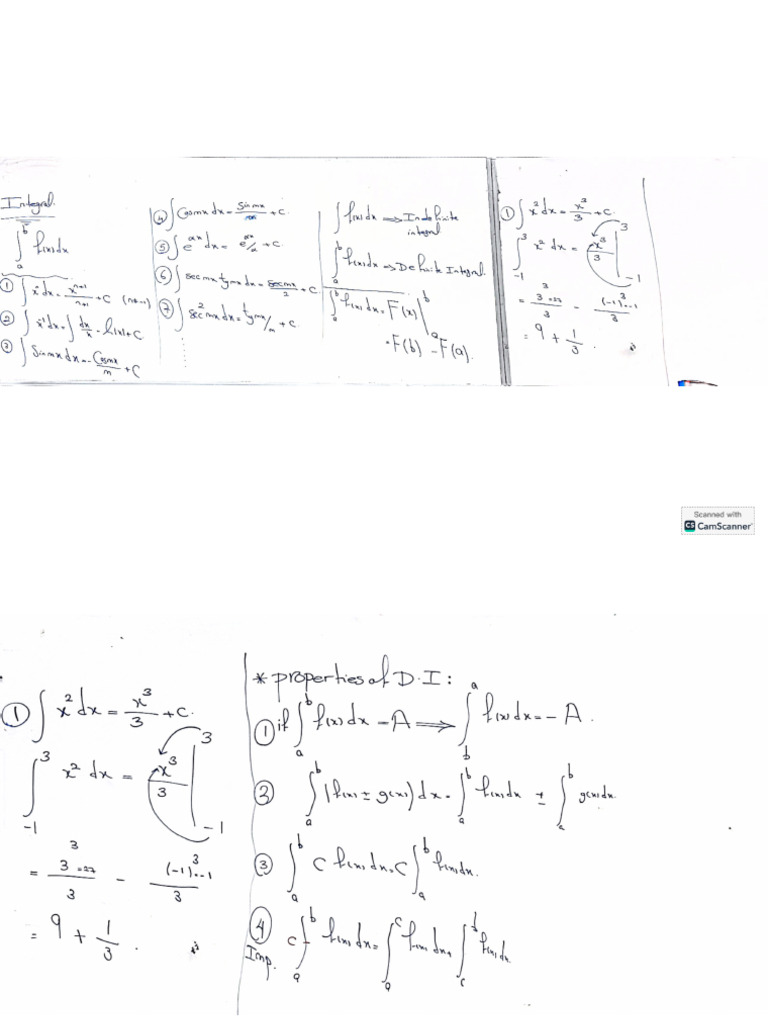 Integral.
∫_a^b f(x)dx
① ∫x^n dx = x^(n+1)/(n+1) + C (n≠-1)
② ∫x^-1 dx = ∫dx/x = ln|x|+C
③ ∫Sin mx dx = -Cosmx/m + C
④ ∫Cosmx dx = Sin mx/m + C.
⑤ ∫e^ax dx = e^ax/a + C.
⑥ ∫sec mx tg mx dx = secmx/2 + C
⑦ ∫sec^2 mx dx = tgmx/m + C.
∫f(x)dx ⇒ Indefinite
integral
∫_a^b f(x)dx ⇒ Definite Integral.
∫_a^b f(x)dx = F(x)|_a^b
= F(b) - F(a).
① ∫x^2 dx = x^3/3 + C.
∫_-1^3 x^2 dx = x^3/3 |_-1^3
= 3^3=27/3 - (-1)^3=-1/3
= 9 + 1/3 .
Scanned with
CS CamScanner
① ∫x^2 dx = x^3/3 + C.
∫_-1^3 x^2 dx = x^3/3 |_-1^3
= 3^3=27/3 - (-1)^3=-1/3
= 9 + 1/3 .
* properties of D.I :
① if ∫_a^b f(x)dx = A ⟹ ∫_b^a f(x)dx = -A.
② ∫_a^b (f(x) ± g(x))dx = ∫_a^b f(x)dx ± ∫_a^b g(x)dx.
③ ∫_a^b C f(x)dx = C ∫_a^b f(x)dx.
④ ∫_a^b f(x)dx = ∫_a^c f(x)dx + ∫_c^b f(x)dx.
Imp.